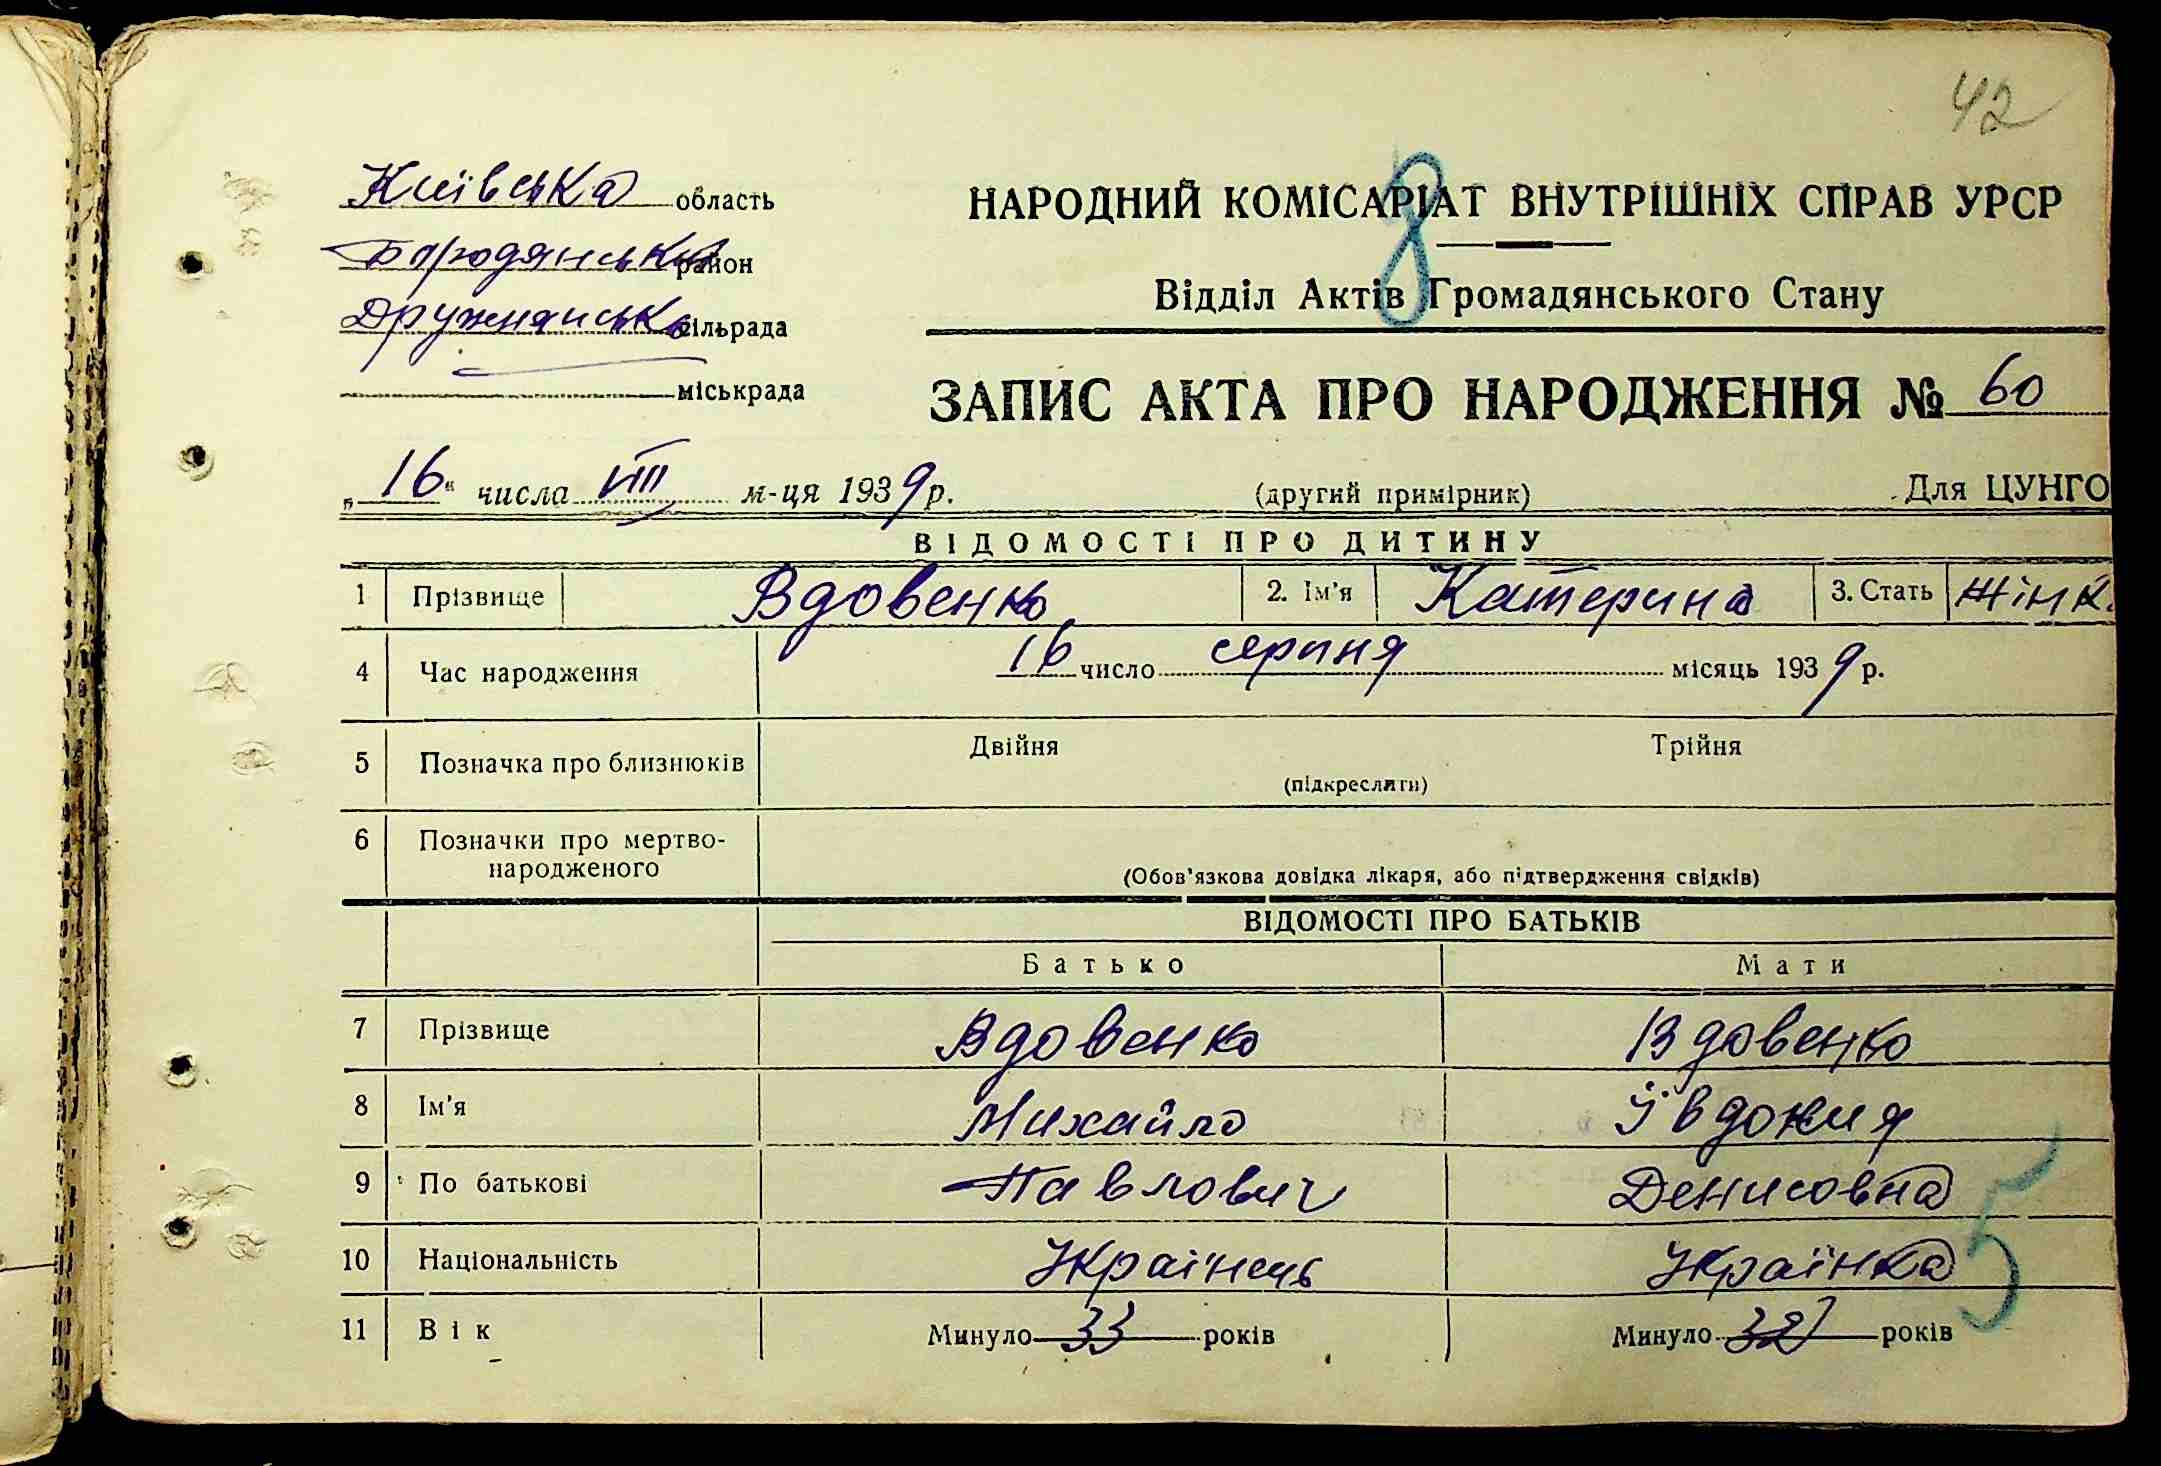 42
Київська область
Бородянський район
Дружнянська сільрада
міськрада
НАРОДНИЙ КОМІСАРІАТ ВНУТРІШНІХ СПРАВ УРСР
8
Відділ Актів Громадянського Стану
ЗАПИС АКТА ПРО НАРОДЖЕННЯ № 60
„16“ числа VIII м-ця 1939 р. (другий примірник) Для ЦУНГО
ВІДОМОСТІ ПРО ДИТИНУ
1 Прізвище Вдовенко 2. Ім'я Катерина 3. Стать жінк.
4 Час народження 16 число серпня місяць 1939 р.
5 Позначка про близнюків Двійня Трійня
(підкреслити)
6 Позначки про мертво-
народженого
(Обов'язкова довідка лікаря, або підтвердження свідків)
ВІДОМОСТІ ПРО БАТЬКІВ
Батько Мати
7 Прізвище Вдовенко Вдовенко
8 Ім'я Михайло Ївдокия
9 По батькові Павлович Денисовна
10 Національність Українець Українка
5
11 Вік Минуло 33 років Минуло років